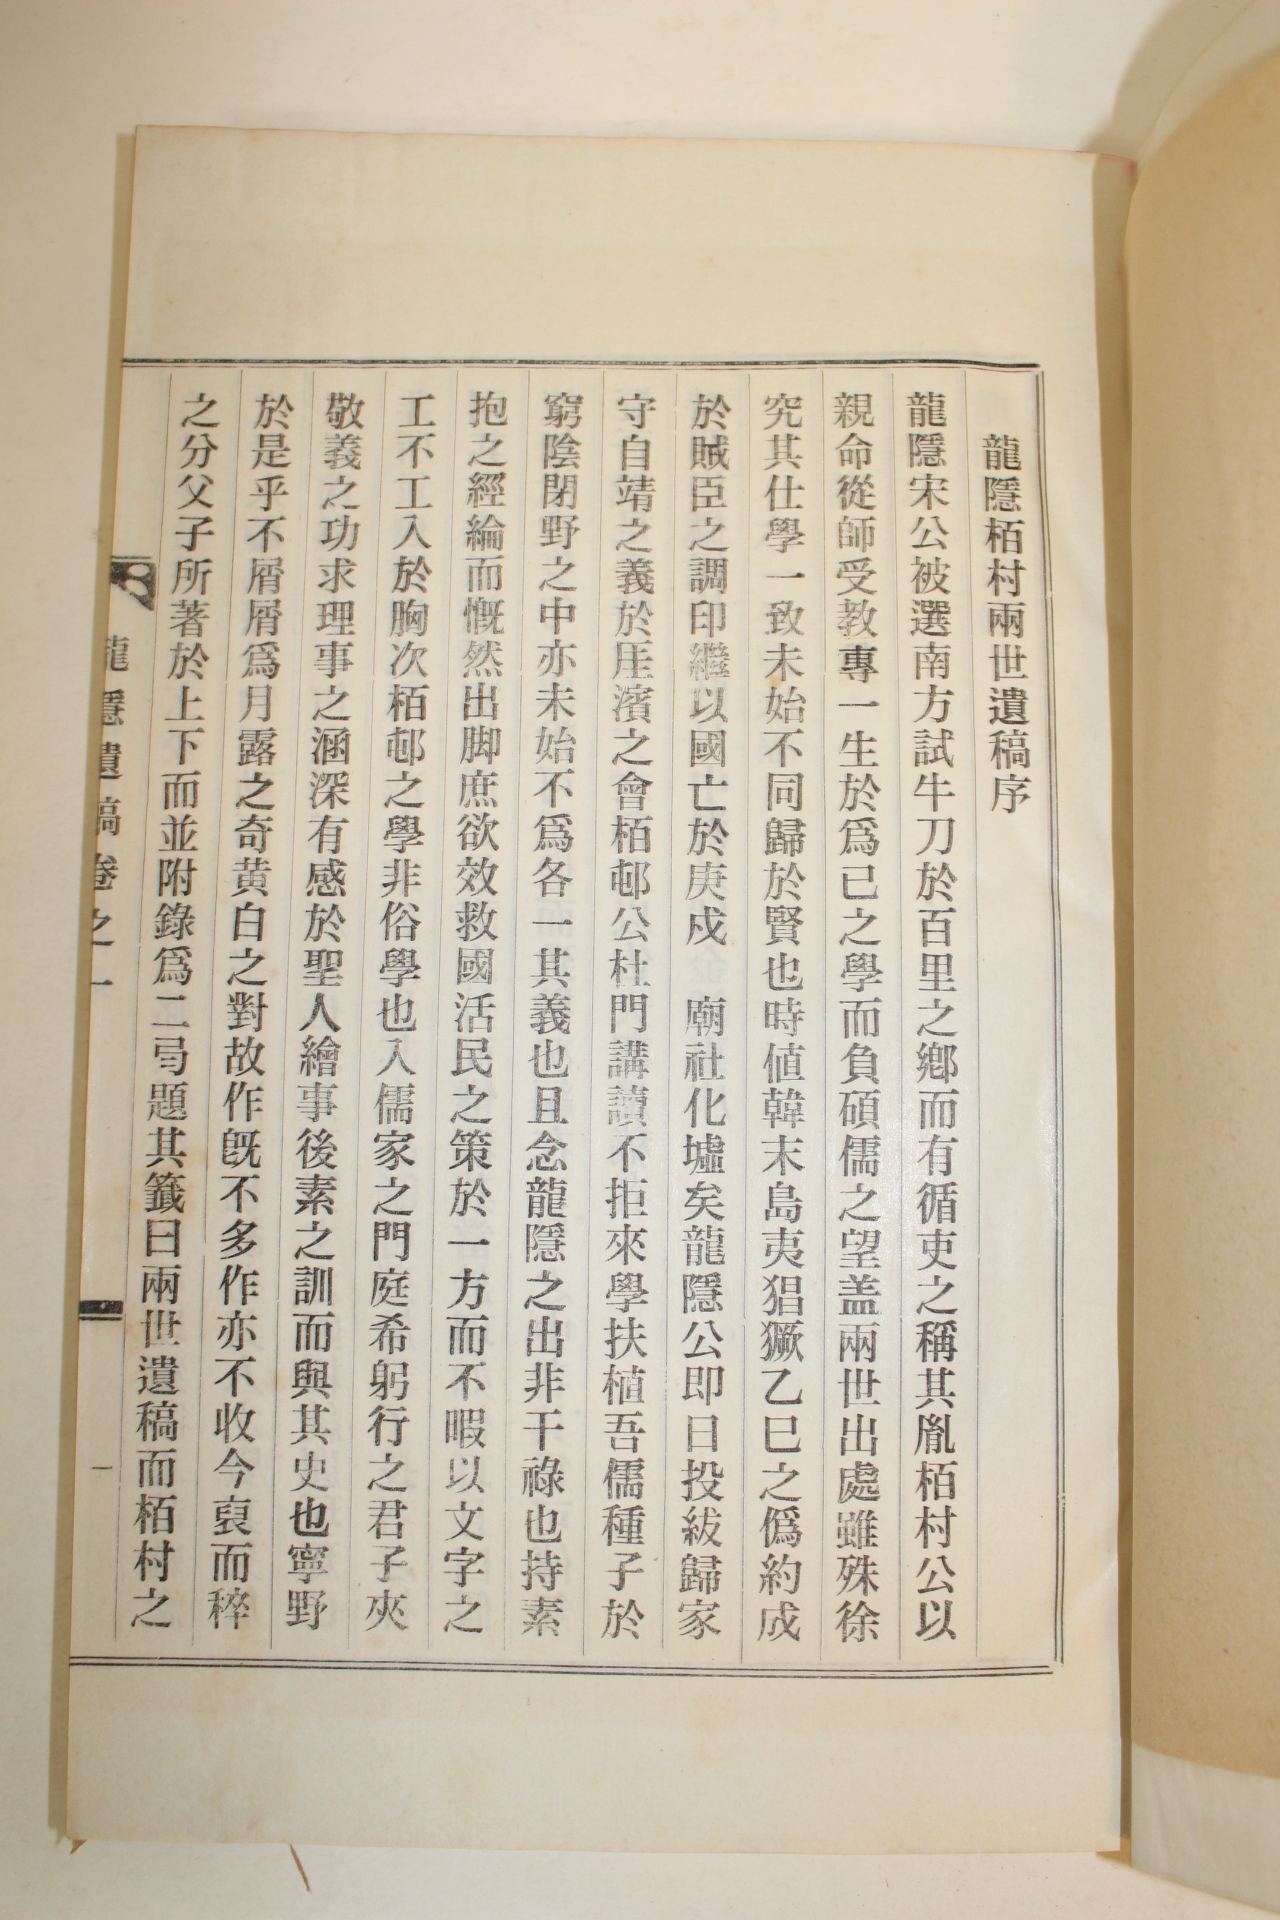 龍隱栢村兩世遺稿序
龍隱宋公被選南方試牛刀於百里之鄕而有循吏之稱其胤栢村公以
親命從師受教專一生於爲己之學而負碩儒之望盖兩世出處雖殊徐
究其仕學一致未始不同歸於賢也時値韓末島夷猖獗乙巳之僞約成
於賊臣之調印繼以國亡於庚戍 廟社化墟矣龍隱公即日投紱歸家
守自靖之義於厓濱之會栢邨公杜門講讀不拒來學扶植吾儒種子於
窮陰閉野之中亦未始不爲各一其義也且念龍隱之出非干祿也持素
抱之經綸而慨然出脚庶欲效救國活民之策於一方而不暇以文字之
工不工入於胸次栢邨之學非俗學也入儒家之門庭希躬行之君子夾
敬義之功求理事之涵深有感於聖人繪事後素之訓而與其史也寧野
於是乎不屑屑爲月露之奇黄白之對故作旣不多作亦不收今裒而稡
之分父子所著於上下而並附錄爲二弓題其籤曰兩世遺稿而栢村之
龍隱遺稿卷之一
一